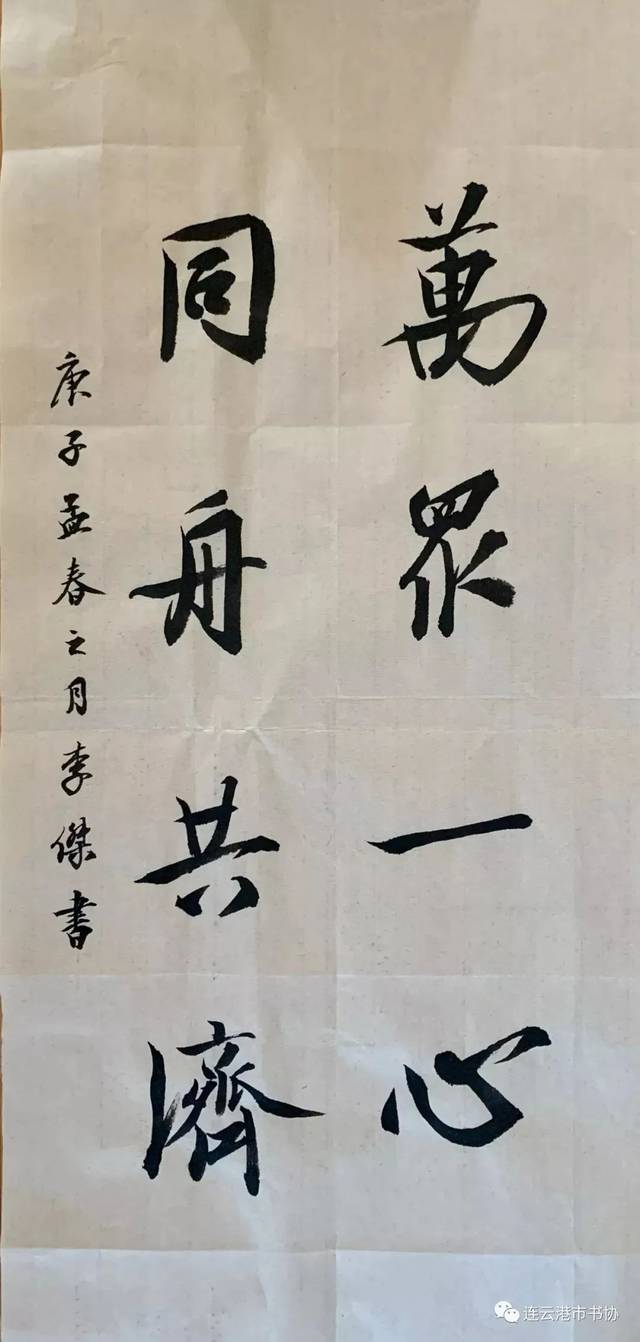 萬眾一心
同舟共濟
庚子孟春之月李傑書
连云港市书协